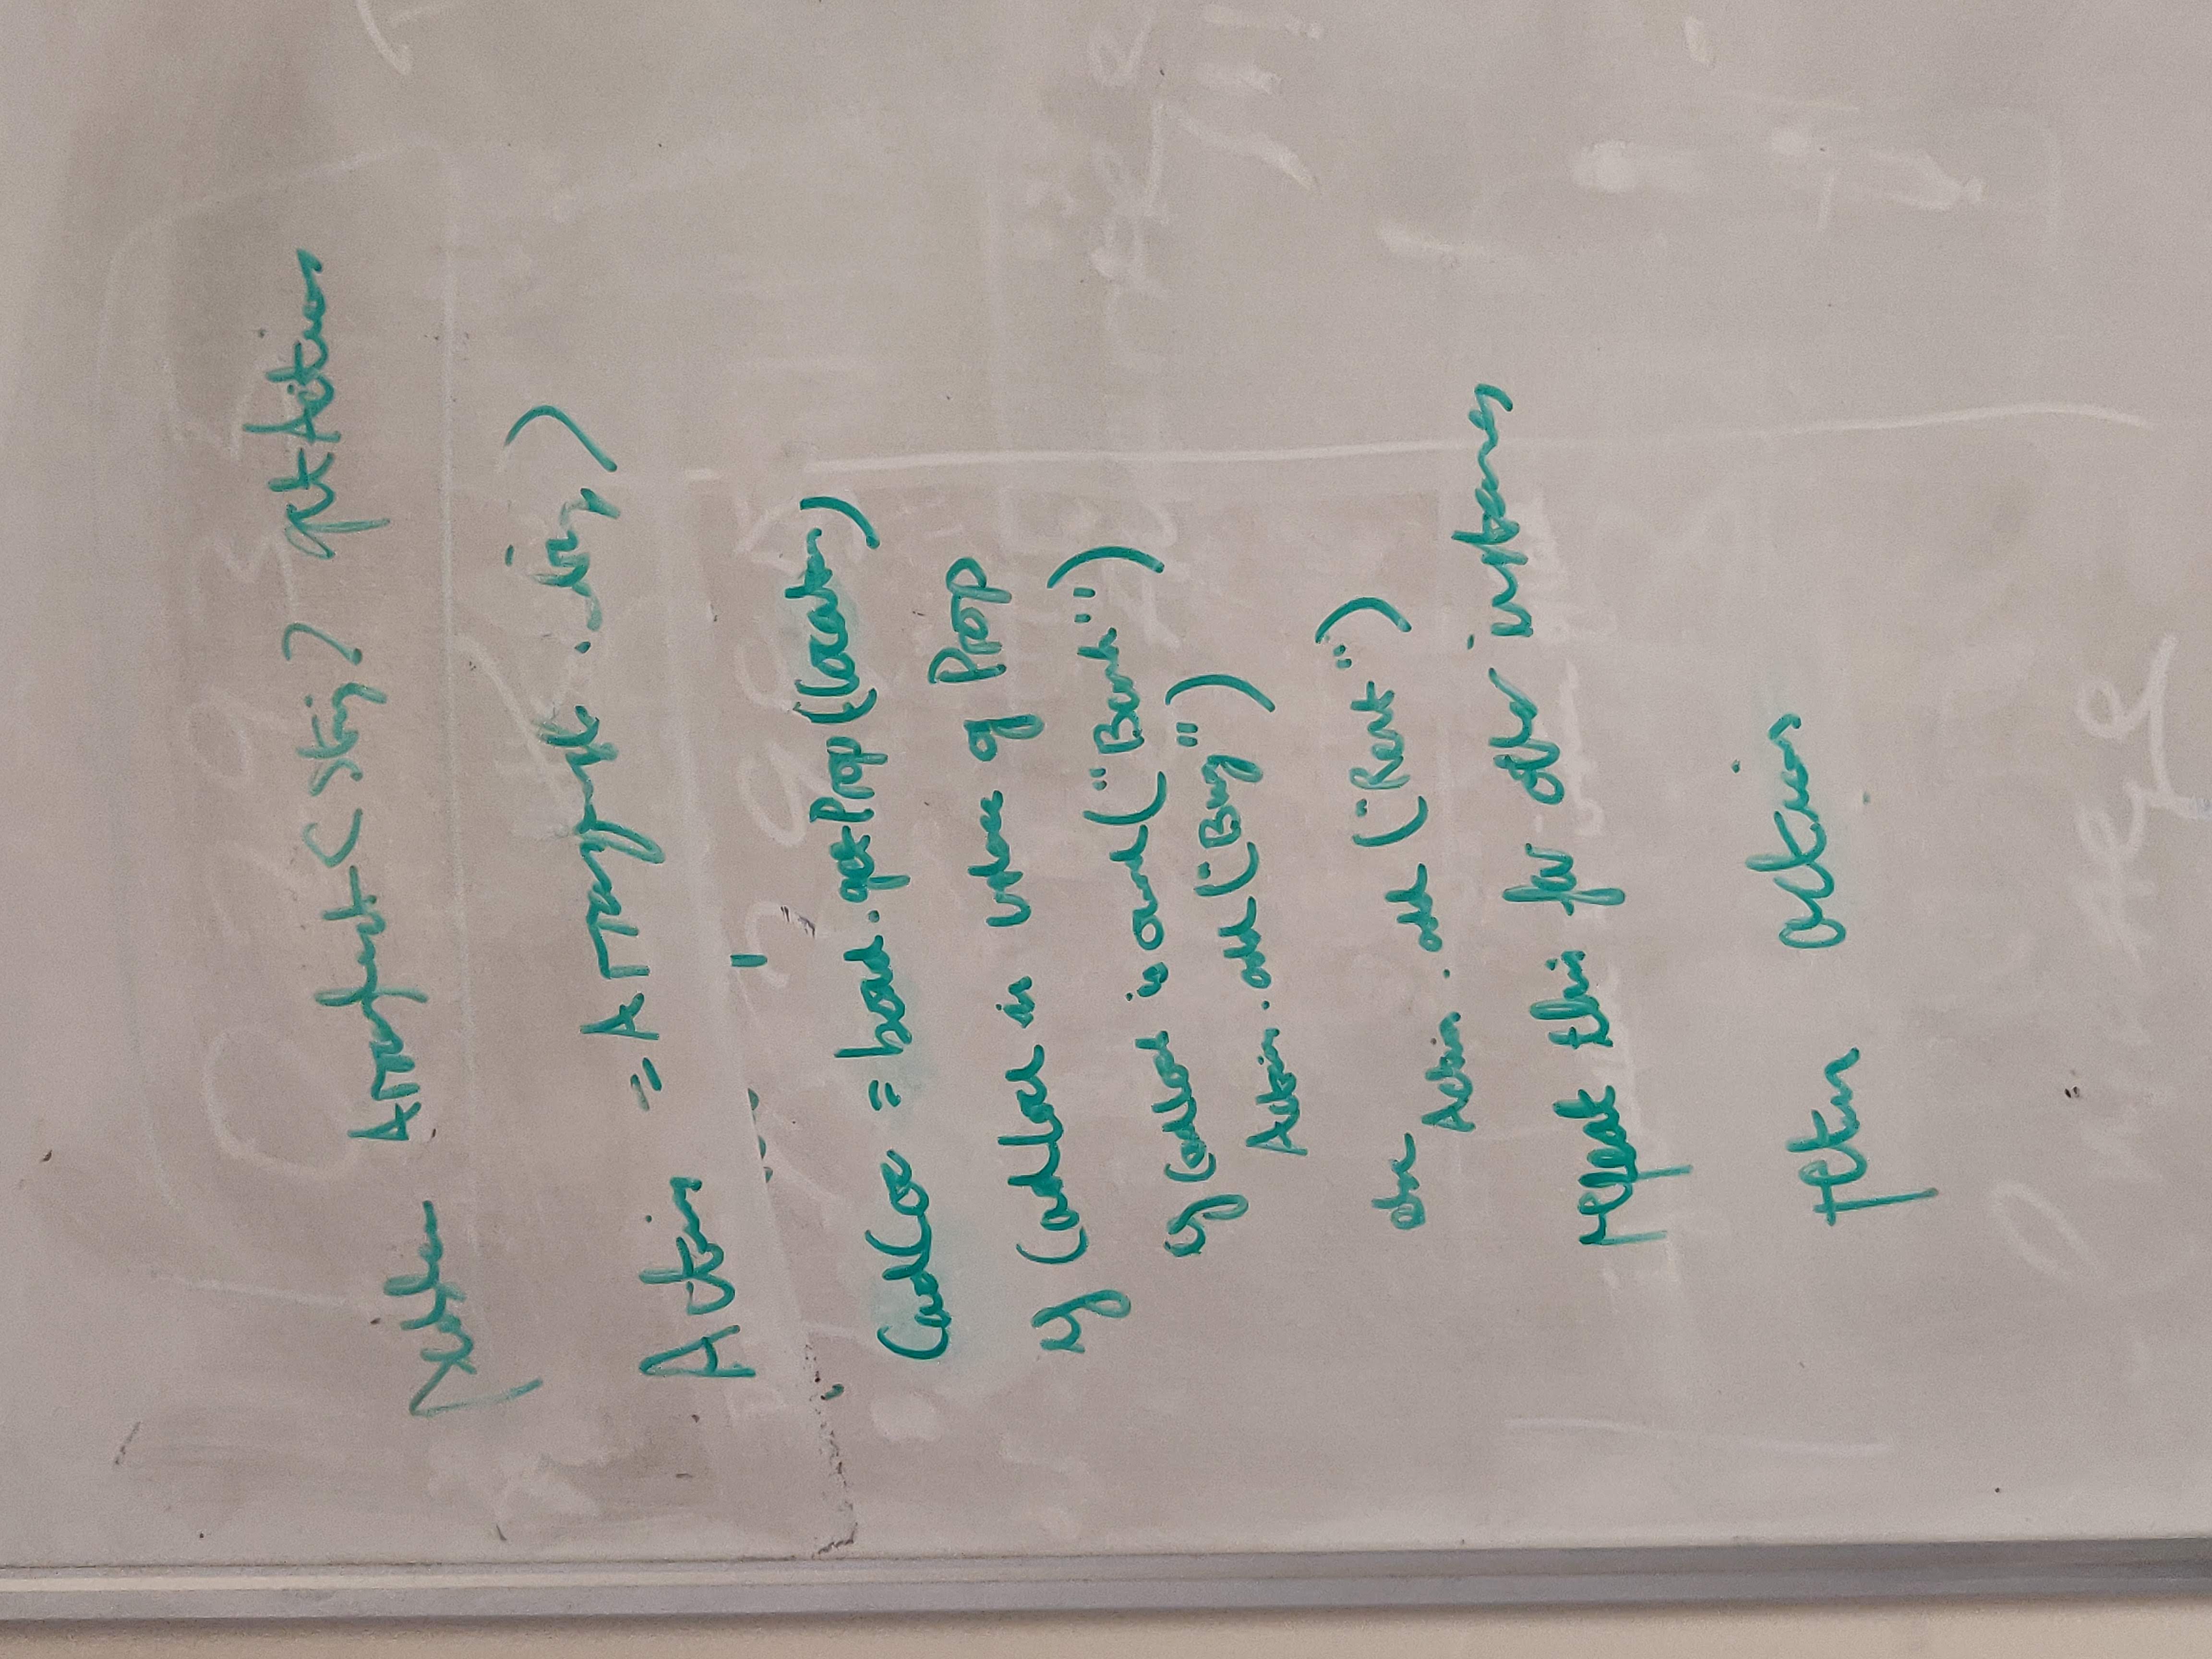 ArrayList <String> getActions
Actions = ArrayList
CardLoc = board.getProp(location)
if CardLoc is instance of Prop
if CardLoc is owned("Bank")
Actions.add("Buy")
else
Actions.add("Rent")
repeat this for other instances
return actions